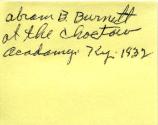 abram B. Burnett
at the Choctaw
acadamy. Ky. 1932